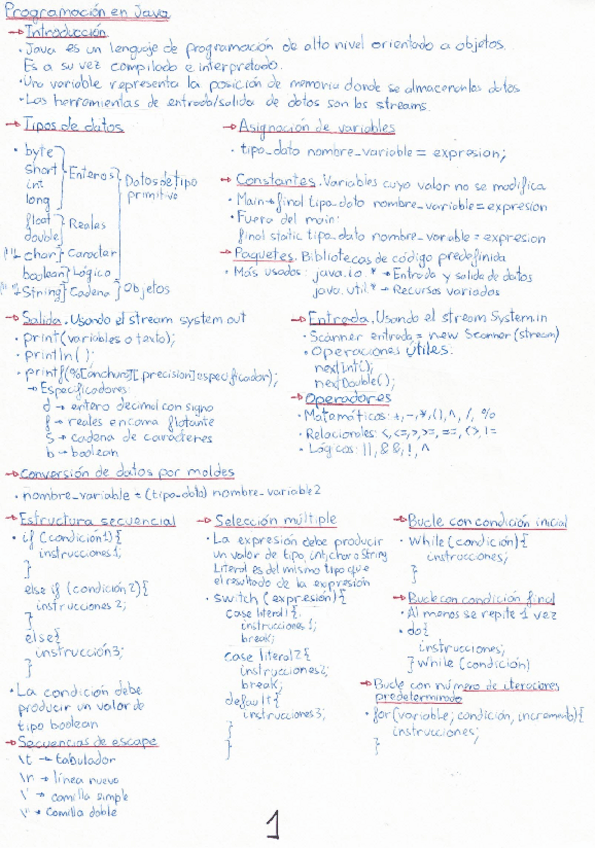 Programación en Java
→ Introducción
• Java es un lenguaje de programación de alto nivel orientado a objetos.
Es a su vez compilado e interpretado.
• Una variable representa la posición de memoria donde se almacenan los datos
• Las herramientas de entrada/salida de datos son los streams.
→ Tipos de datos
• byte
short
int
long
Enteros
float
double
Reales
char
Caracter
boolean
Lógico
Datos de tipo
primitivo
String
Cadena
Objetos
→ Asignación de variables
• tipo_dato nombre_variable = expresion;
→ Constantes. Variables cuyo valor no se modifica
• Main → final tipo_dato nombre_variable = expresion
• Fuera del main:
final static tipo_dato nombre_variable = expresion
→ Paquetes. Bibliotecas de código predefinida
• Más usados: java.io.* → Entrada y salida de datos
java.util.* → Recursos variados
→ Salida. Usando el stream system out
• print(variables o texto);
• println( );
• printf(%[anchura][.precision]especificador);
→ Especificadores:
d → entero decimal con signo
f → reales en coma flotante
S → cadena de carácteres
b → boolean
→ Entrada. Usando el stream System.in
• Scanner entrada = new Scanner(stream)
• Operaciones Útiles:
nextInt();
nextDouble();
→ Operadores
• Matemáticos: +, -, *, (), ^, /, %
• Relacionales: <, <=, >, >=, ==, <>, !=
• Lógicos: ||, &&, !, ^
→ Conversión de datos por moldes
• nombre_variable = (tipo_dato) nombre_variable2
→ Estructura secuencial
• if (condición1){
instrucciones1;
}
else if (condición2){
instrucciones 2;
}
else{
instrucción3;
}
• La condición debe
producir un valor de
tipo boolean
→ Secuencias de escape
\t → tabulador
\n → línea nueva
\' → comilla simple
\" → comilla doble
→ Selección múltiple
• La expresión debe producir
un valor de tipo, int, char o String
Literal es del mismo tipo que
el resultado de la expresión
• switch (expresión){
case literal1{
instrucciones1;
break;
case literal2{
instrucciones2;
break;
default{
instrucciones3;
}
}
→ Bucle con condición inicial
• While (condición){
instrucciones;
}
→ Bucle con condición final
• Al menos se repite 1 vez
• do{
instrucciones;
} While (condición)
→ Bucle con número de iteraciones
predeterminado
• for(variable; condición, incremento){
instrucciones;
}
1